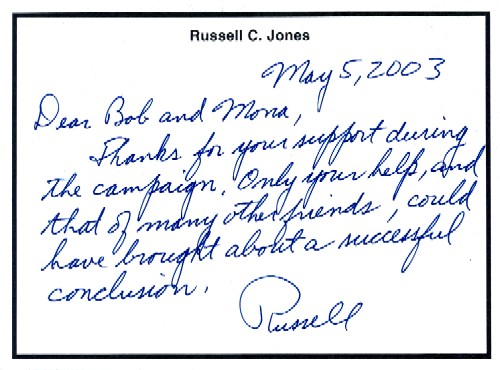 Russell C. Jones
May 5, 2003
Dear Bob and Mona,
Thanks for your support during
the campaign. Only your help, and
that of many other friends, could
have brought about a successful
conclusion.
Russell